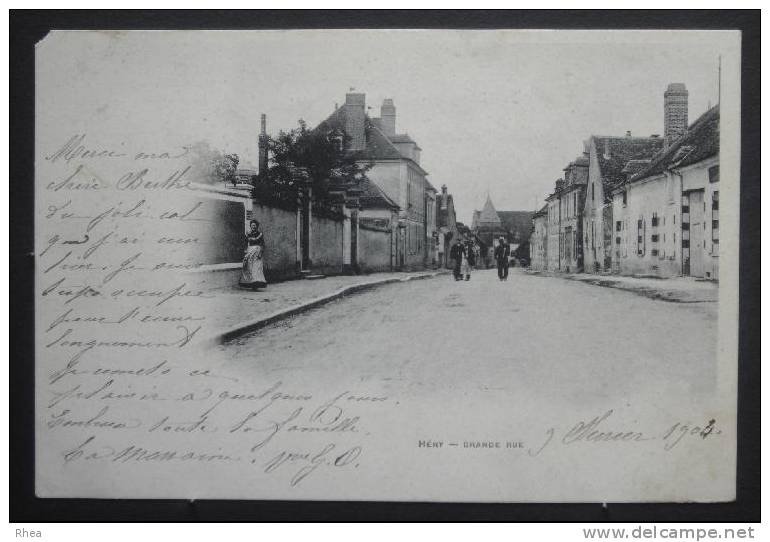 Merci ma
chère Berthe
du joli col
que j'ai eu
hier. Je suis
trop occupée
pour t'écrire
longuement
je remets ce
plaisir à quelques jours.
Embrasse toute la famille.
Ta Marraine.
HÉRY — GRANDE RUE
9 février 1904.
Rhea
www.delcampe.net